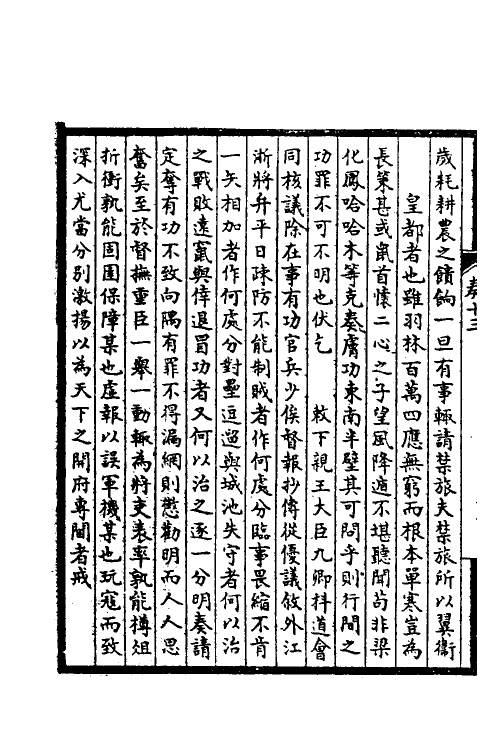 歲耗耕農之饋餉一旦有事輒請禁旅夫禁旅所以翼衞
皇都者也雖羽林百萬四應無窮而根本單寒豈為
長策甚或鼠首懷二心之子望風降逃不堪聽聞苟非梁
化鳳哈哈木等克奏膚功東南半壁其可問乎則行間之
功罪不可不明也伏乞 敕下親王大臣九卿科道會
同核議除在事有功官兵少俟督報抄傳從優議敘外江
浙將弁平日疎防不能制賊者作何處分臨事畏縮不肯
一矢相加者作何處分對壘逗遛與城池失守者何以治
之戰敗遠竄與倖退冒功者又何以治之逐一分明奏請
定奪有功不致向隅有罪不得漏網則懲勸明而人人思
奮矣至於督撫重臣一舉一動輒為將吏表率孰能樽俎
折衝孰能固圉保障某也虛報以誤軍機某也玩寇而致
深入尤當分別激揚以為天下之開府專閫者戒
奏十三